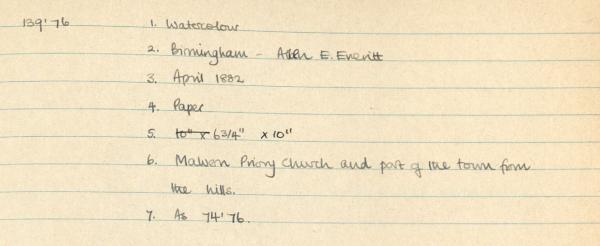 139'76 1. Watercolour
2. Birmingham - Allen E. Everitt
3. April 1882
4. Paper
5. ~~10" x~~ 6 3/4" x 10"
6. Malvern Priory Church and part of the town from
the hills.
7. As 74'76.